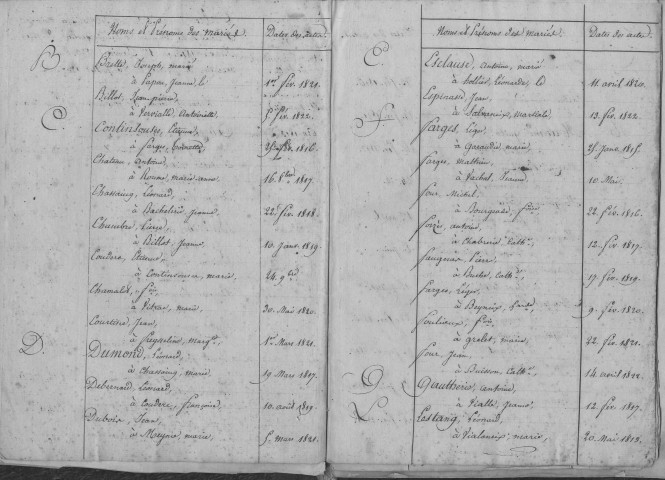 Noms et Prénoms des mariés. Dates des actes.
B. Breilh, Joseph, marié
à Papon, Jeanne, le 1er fév. 1821.
Billot, Jean pierre,
à Vervialle, Antoinette 5 fév. 1822.
C. Continsouse, Etienne,
à farges, 1816.
Chateau, Antoine,
à Roume, marie anne 16 1817.
Chassaing, Léonard,
à Bachelerie, jeanne 22 fév. 1818.
Chambre, Liège,
à Billot, jeanne 10 janv. 1819.
Coudert, Etienne,
à Continsousa, marie, 24. 9bre
Chamalot, fois
à Vitrac, marie, 30. Mai 1820.
Courtine, Jean,
à freysseline, margte. 1er Mars 1821.
D. Dumond, Léonard,
à Chassaing, marie 19 Mars 1817.
Debernard, Léonard,
à Coudere, françoise, 10 août 1819.
Dubois, Jean,
à Meynie, marie, 5. mars 1821.
Noms et Prénoms des mariés. Dates des actes.
E. Esclause, Antoine, marié
à Léonarde, le 11 avril 1820.
Espinasse, Jean,
à martiale, 13. fév. 1822.
F. Farges, Léger,
à Garaudie, marie, 25. Janv. 1815.
farges, mathieu,
à Vachal, 10 Mai.
four, Michel,
à Bourgnad, foise 22. fév. 1816.
forès, antoine,
à Chabrerie, Cathe. 12. fév. 1817.
faugeras, Pierre,
à Cathe. 17 fév. 1819.
farges, Léger,
à Beyneix, 9. fév. 1820.
fouliaux, fois
à gralet, marie, 22. fév. 1821.
four, Jean,
à Buisson, Cathe. 14 août 1822.
G. Gautherie, antoine,
à Vialle, jeanne, 12. fév. 1817.
L. Lestang, Léonard,
à Vialaneix, marie, 20. Mai 1813.